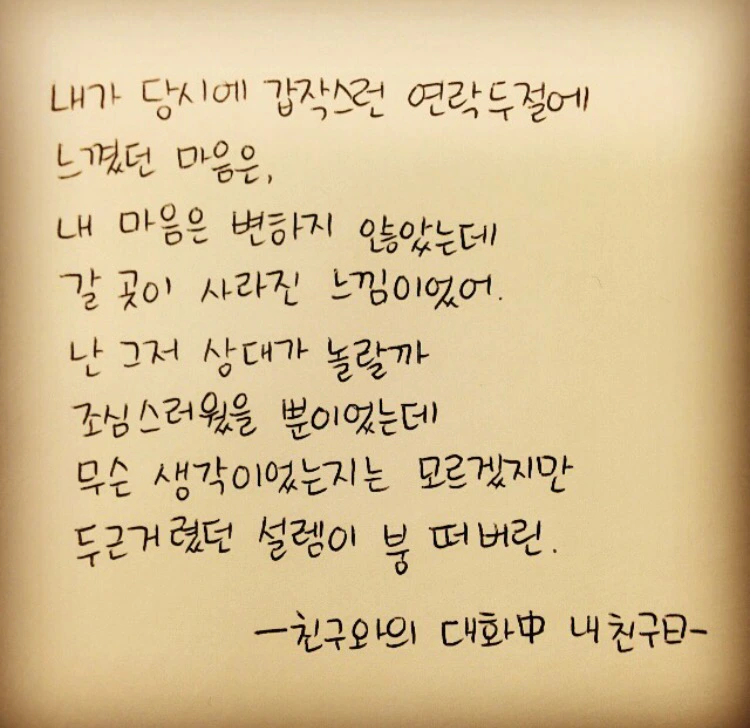 내가 당시에 갑작스런 연락두절에
느꼈던 마음은,
내 마음은 변하지 않았는데
갈 곳이 사라진 느낌이었어.
난 그저 상대가 놀랄까
조심스러웠을 뿐이었는데
무슨 생각이었는지는 모르겠지만
두근거렸던 설렘이 붕 떠버린.
-친구와의 대화中 내친구曰-